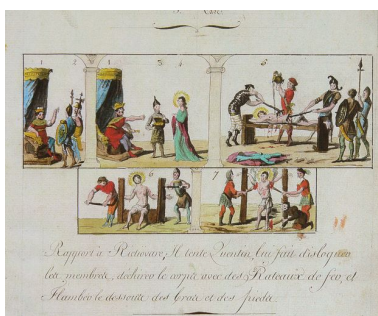 1 2 1 3 4 5
6 7
Rapport à Rictiovare, Il tente Quentin, lui fait disloquer
les membres, déchirer le corps avec des Rateaux de fer, et
Flamber le dessous des bras et des pieds.